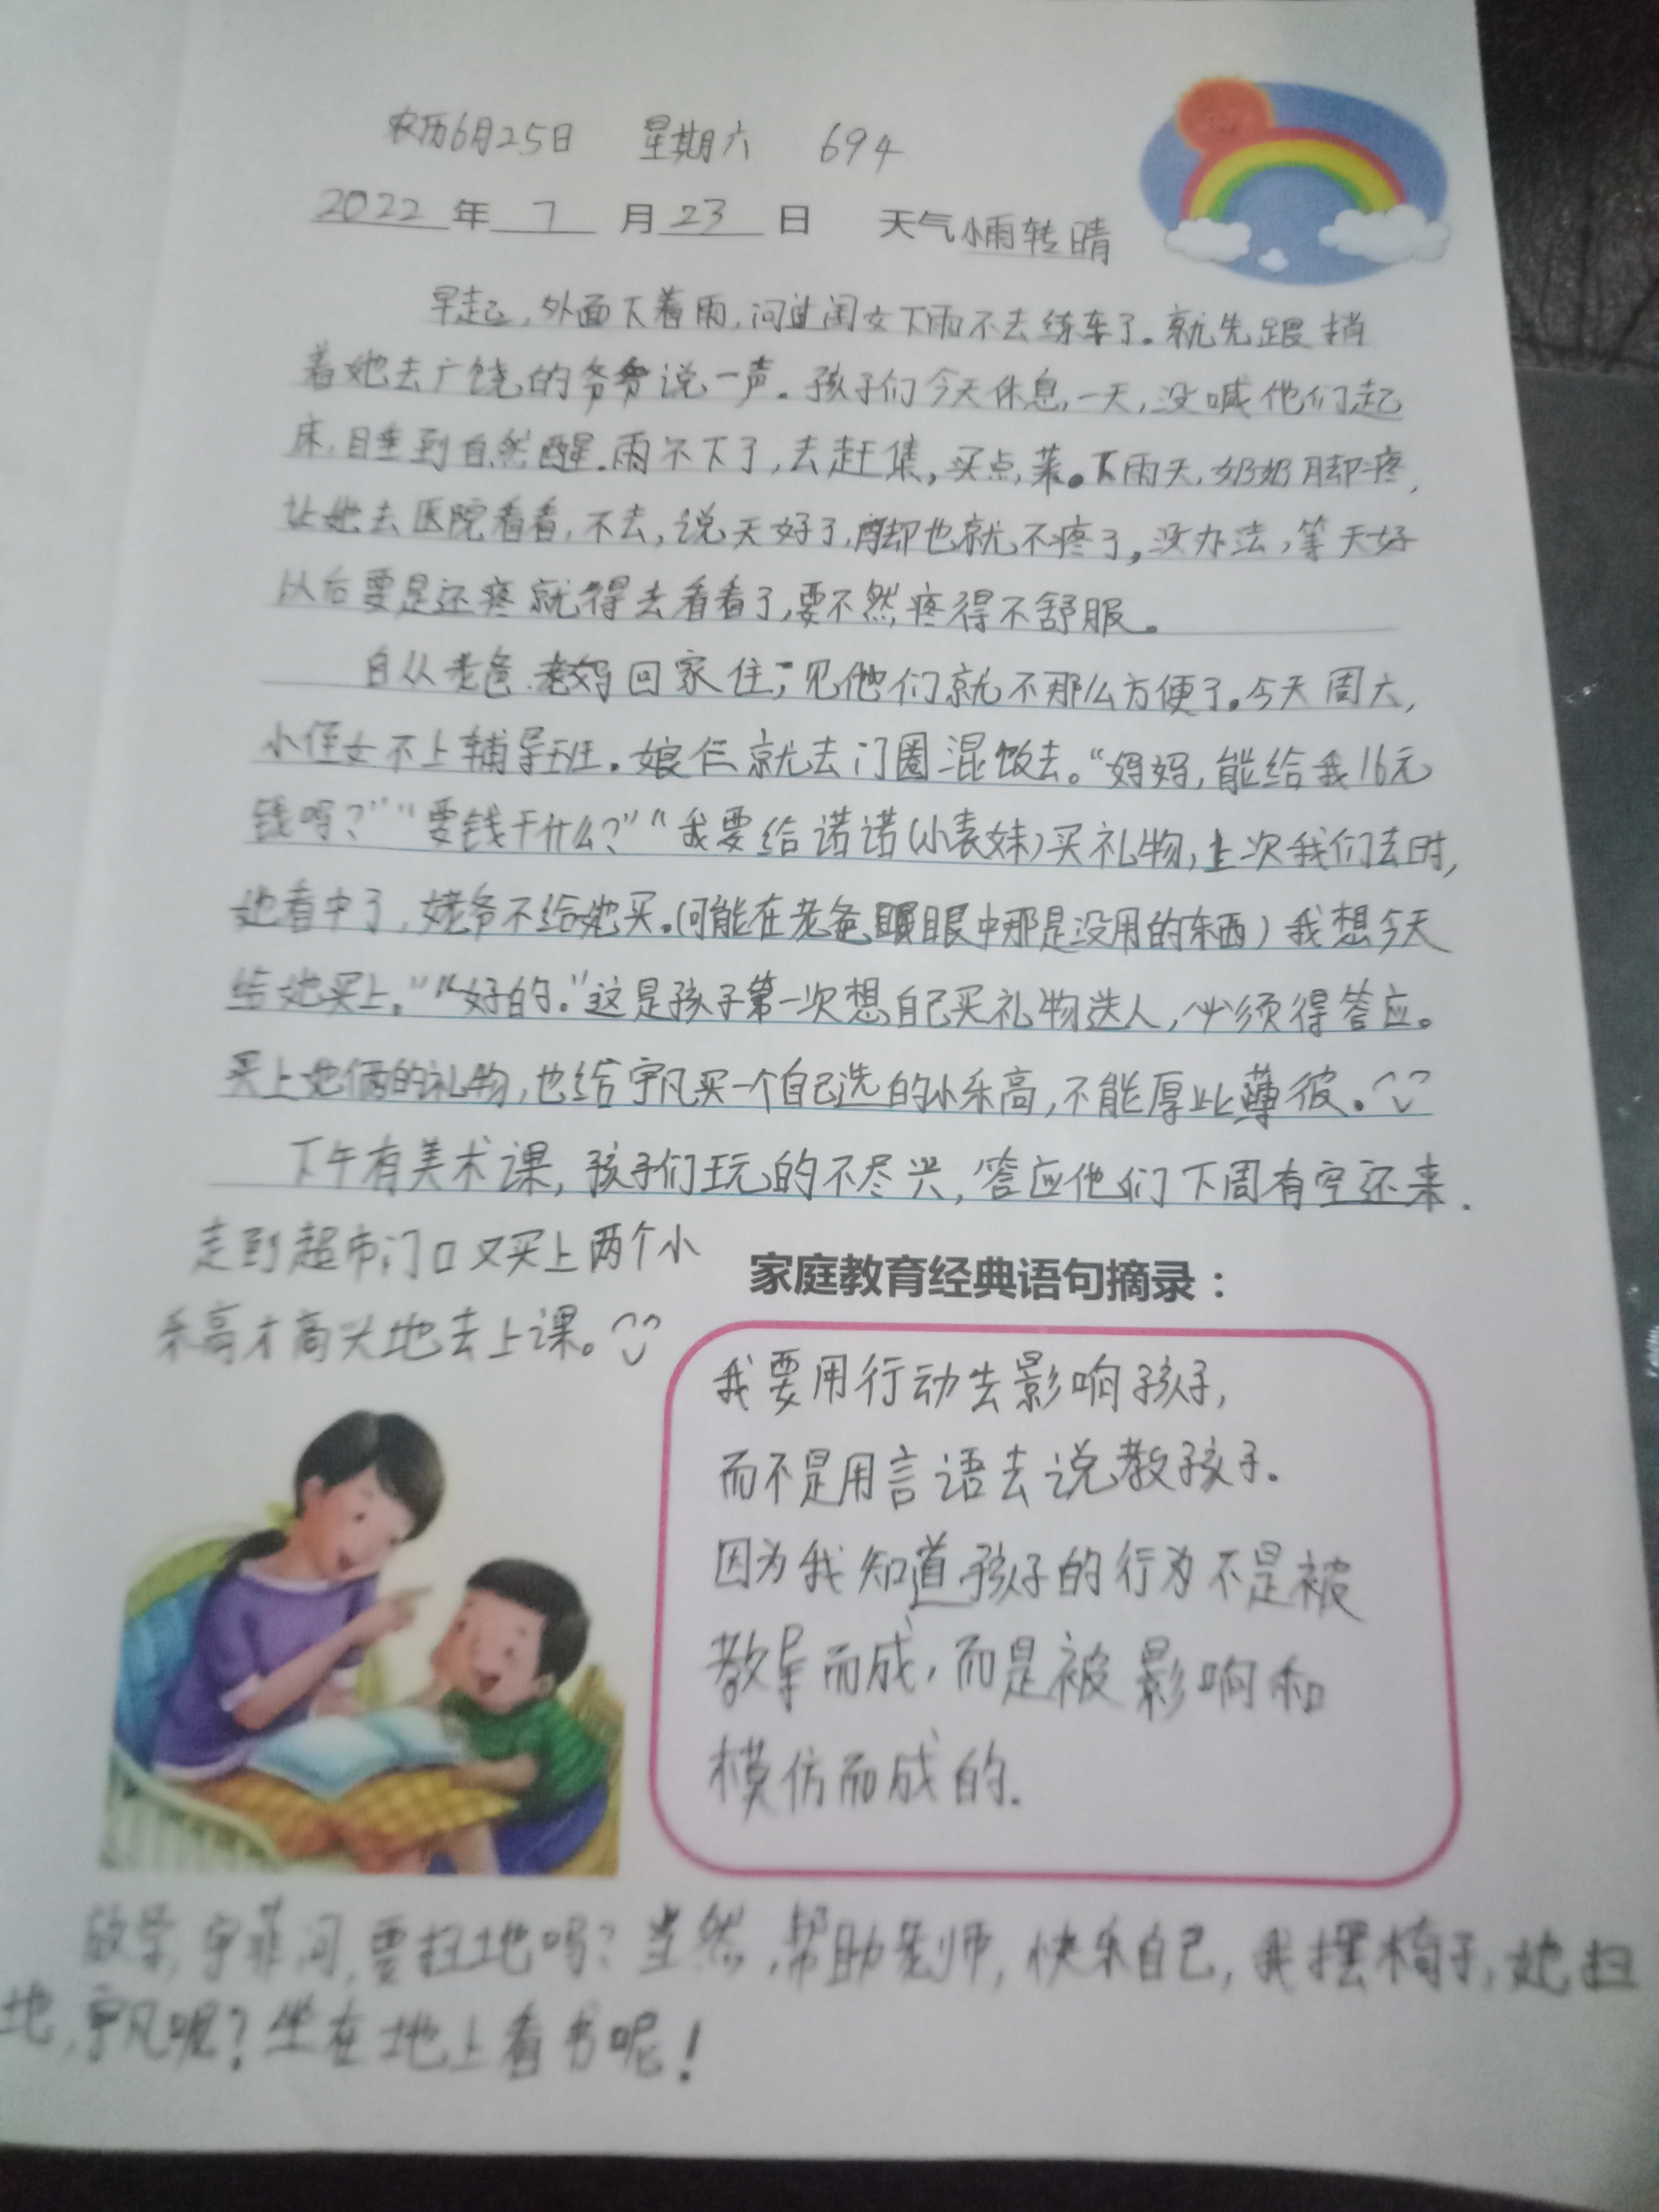 农历6月25日 星期六 694
2022年 7 月23日 天气小雨转晴
早起，外面下着雨，问过闺女下雨不去练车了。就先跟捎
着她去广饶的爷爷说一声。孩子们今天休息一天，没喊他们起
床，睡到自然醒。雨不下了，去赶集，买点菜。下雨天，奶奶脚疼，
让她去医院看看，不去，说天好了，脚也就不疼了，没办法，等天好
以后要是还疼就得去看看了，要不然疼得不舒服。
自从老爸、老妈回家住，见他们就不那么方便了。今天周六，
小侄女不上辅导班。娘仨就去门圈混饭去。“妈妈，能给我16元
钱吗？”“要钱干什么？”“我要给诺诺(小表妹)买礼物，上次我们去时，
她看中了，姥爷不给她买。(可能在老爸眼中那是没用的东西)我想今天
给她买上。”“好的。”这是孩子第一次想自己买礼物送人，必须得答应。
买上她俩的礼物，也给宇凡买一个自己选的小乐高，不能厚此薄彼。
下午有美术课，孩子们玩的不尽兴，答应他们下周有空还来.
走到超市门口又买上两个小
乐高才高兴地去上课。
家庭教育经典语句摘录：
我要用行动去影响孩子，
而不是用言语去说教孩子.
因为我知道孩子的行为不是被
教导而成，而是被影响和
模仿而成的.
放学，宇菲问，要扫地吗？当然，帮助老师，快乐自己，我摆椅子，她扫
地，宇凡呢？坐在地上看书呢！